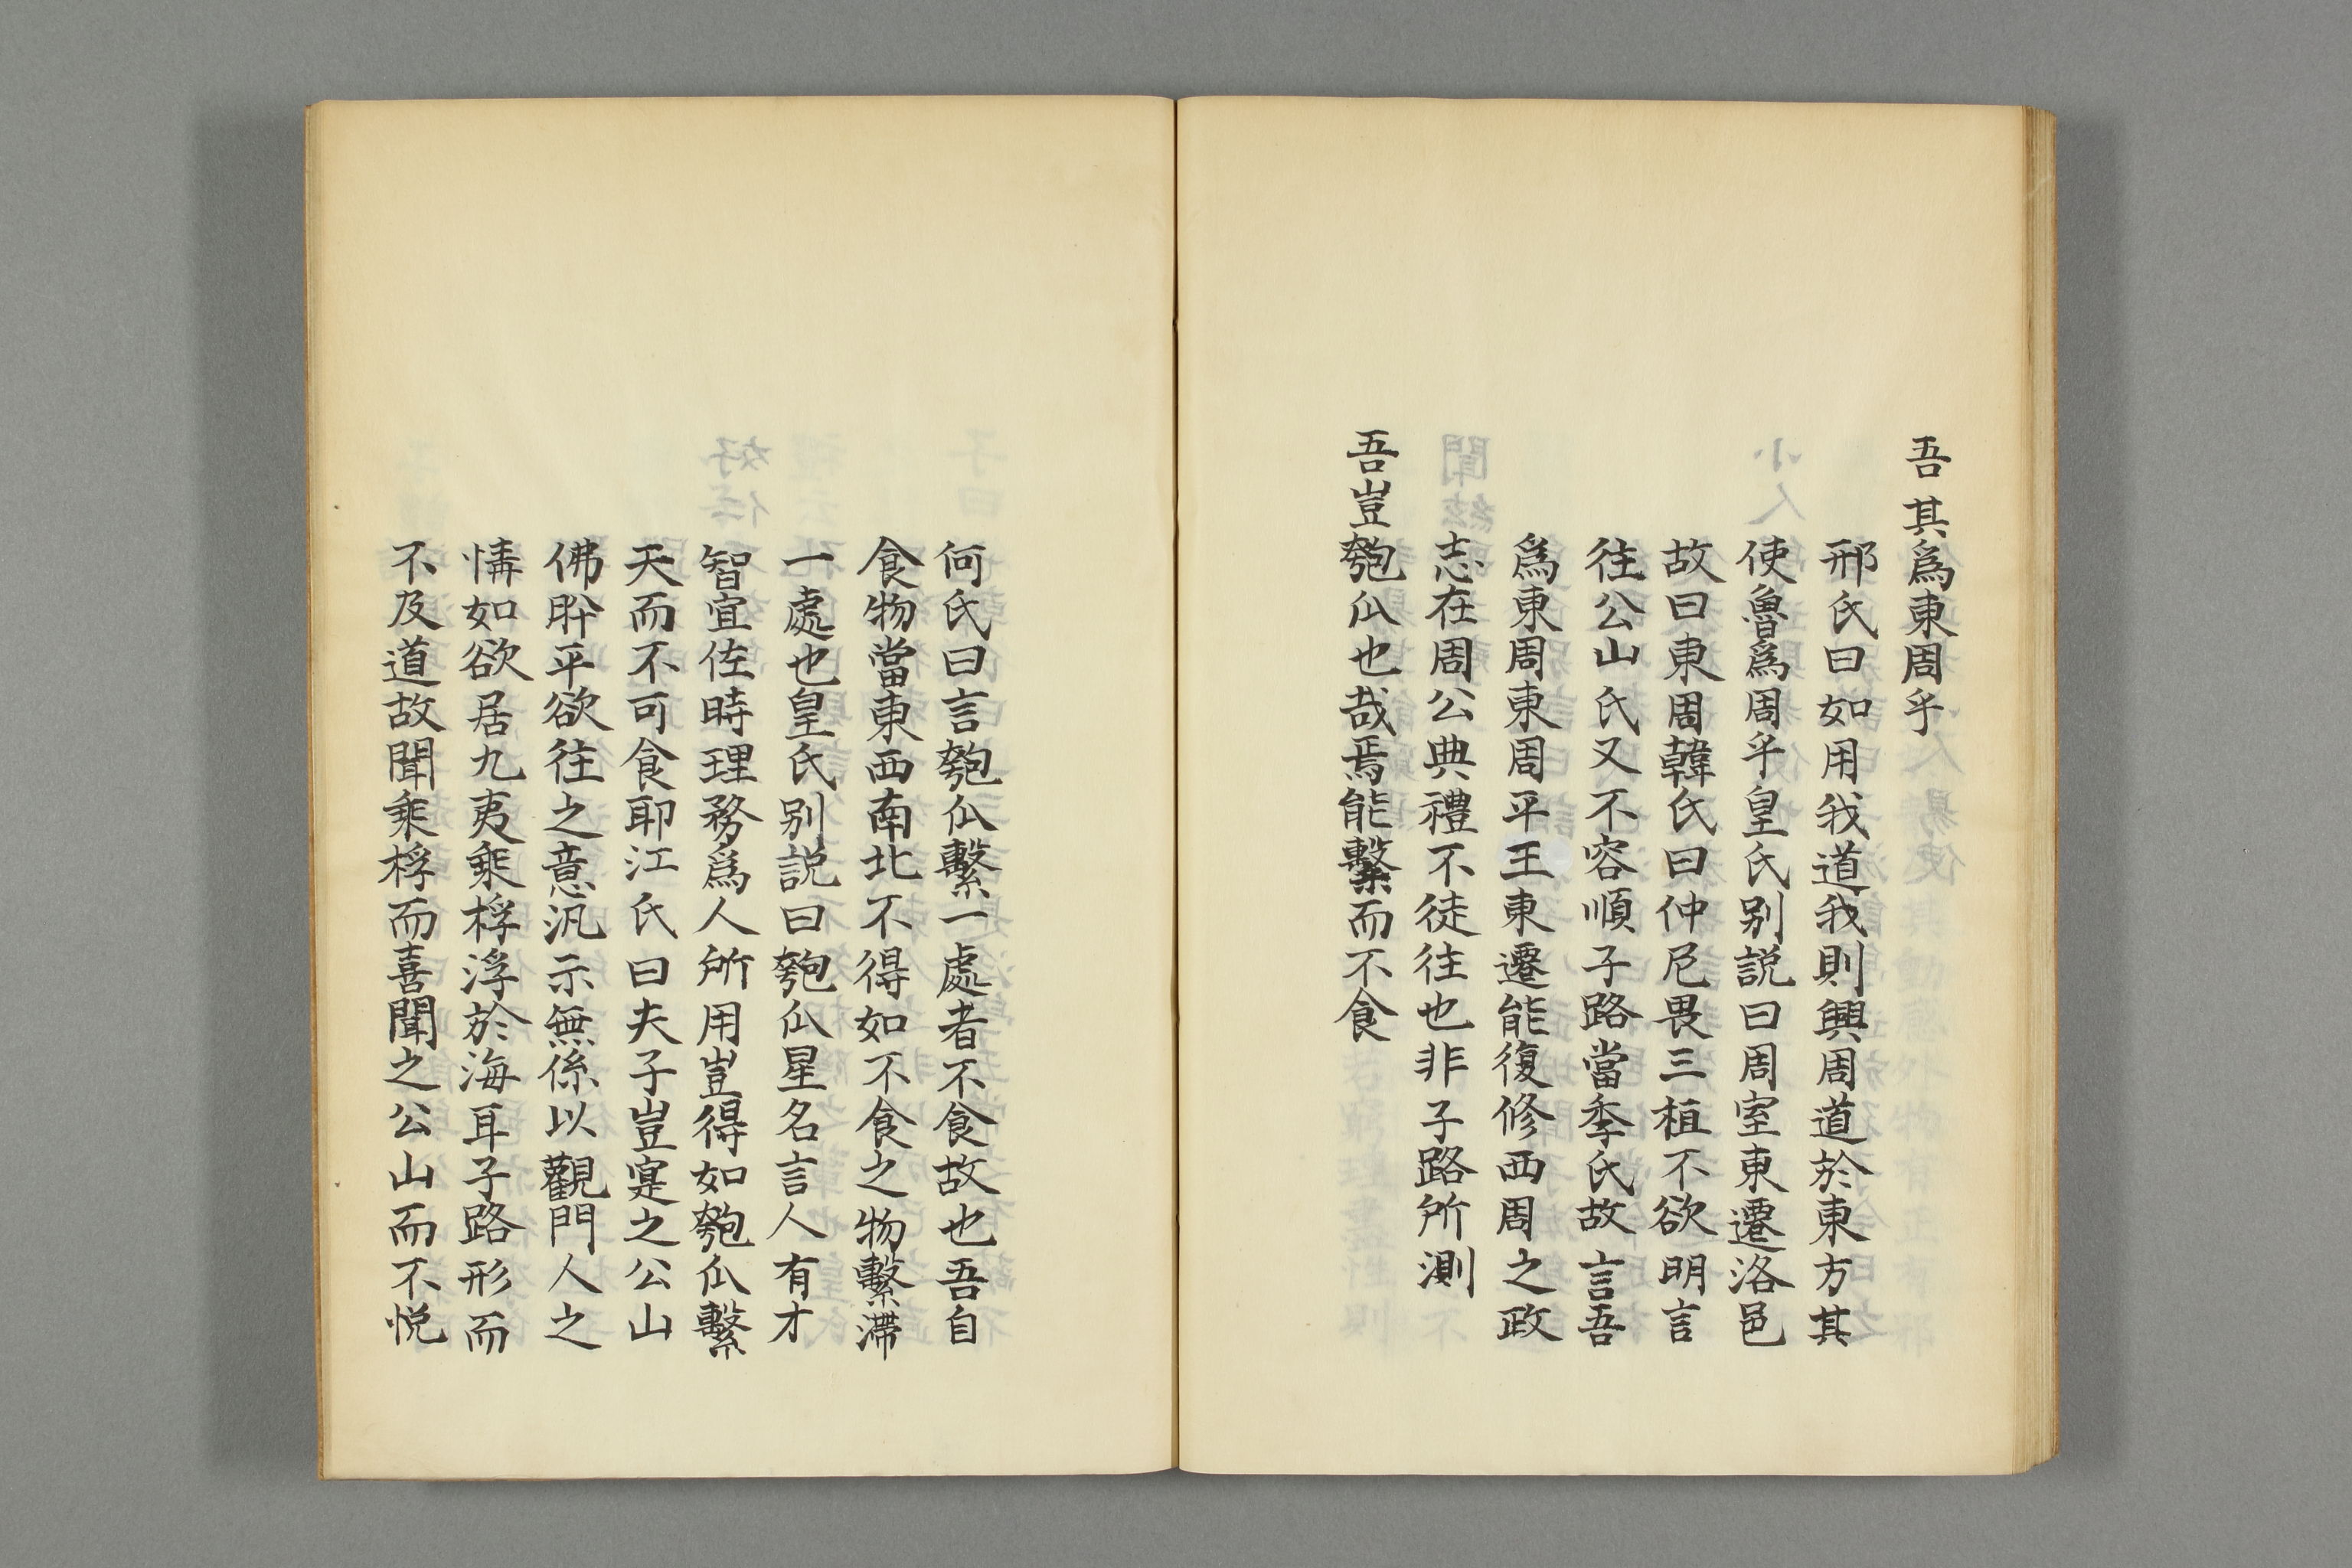 吾其爲東周乎
邢氏曰如用我道我則興周道於東方其
使魯爲周乎皇氏別説曰周室東遷洛邑
故曰東周韓氏曰仲尼畏三桓不欲明言
往公山氏又不容順子路當季氏故言吾
爲東周東周平王東遷能復修西周之政
志在周公典禮不徒往也非子路所測
吾豈匏瓜也哉焉能繫而不食
何氏曰言匏瓜繫一處者不食故也吾自
食物當東西南北不得如不食之物繫滯
一處也皇氏別説曰匏瓜星名言人有才
智宜佐時理務爲人所用豈得如匏瓜繫
天而不可食耶江氏曰夫子豈寔之公山
佛肸平欲往之意汎示無係以觀門人之
情如欲居九夷乘桴浮於海耳子路形而
不及道故聞乘桴而喜聞之公山而不悦